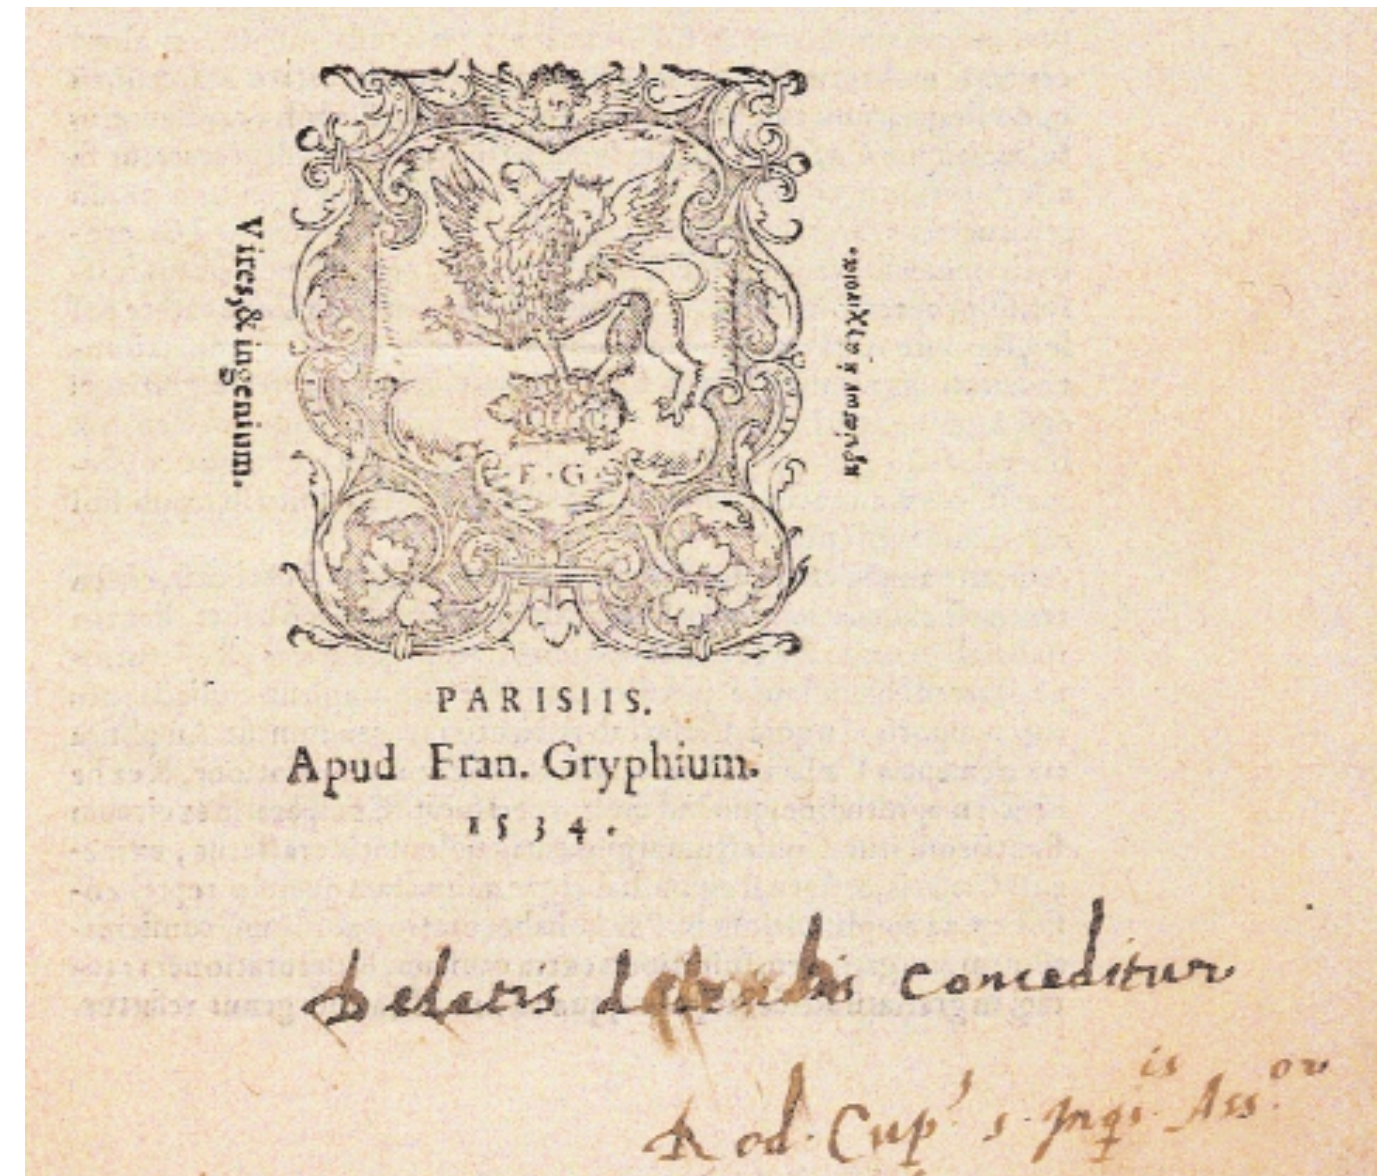 Vires, & ingenium.
F · G
PARISIIS.
Apud Fran. Gryphium.
1534.
Deletis delendis conceditur
Rod. Cup.s s. Inq.is Ass.or